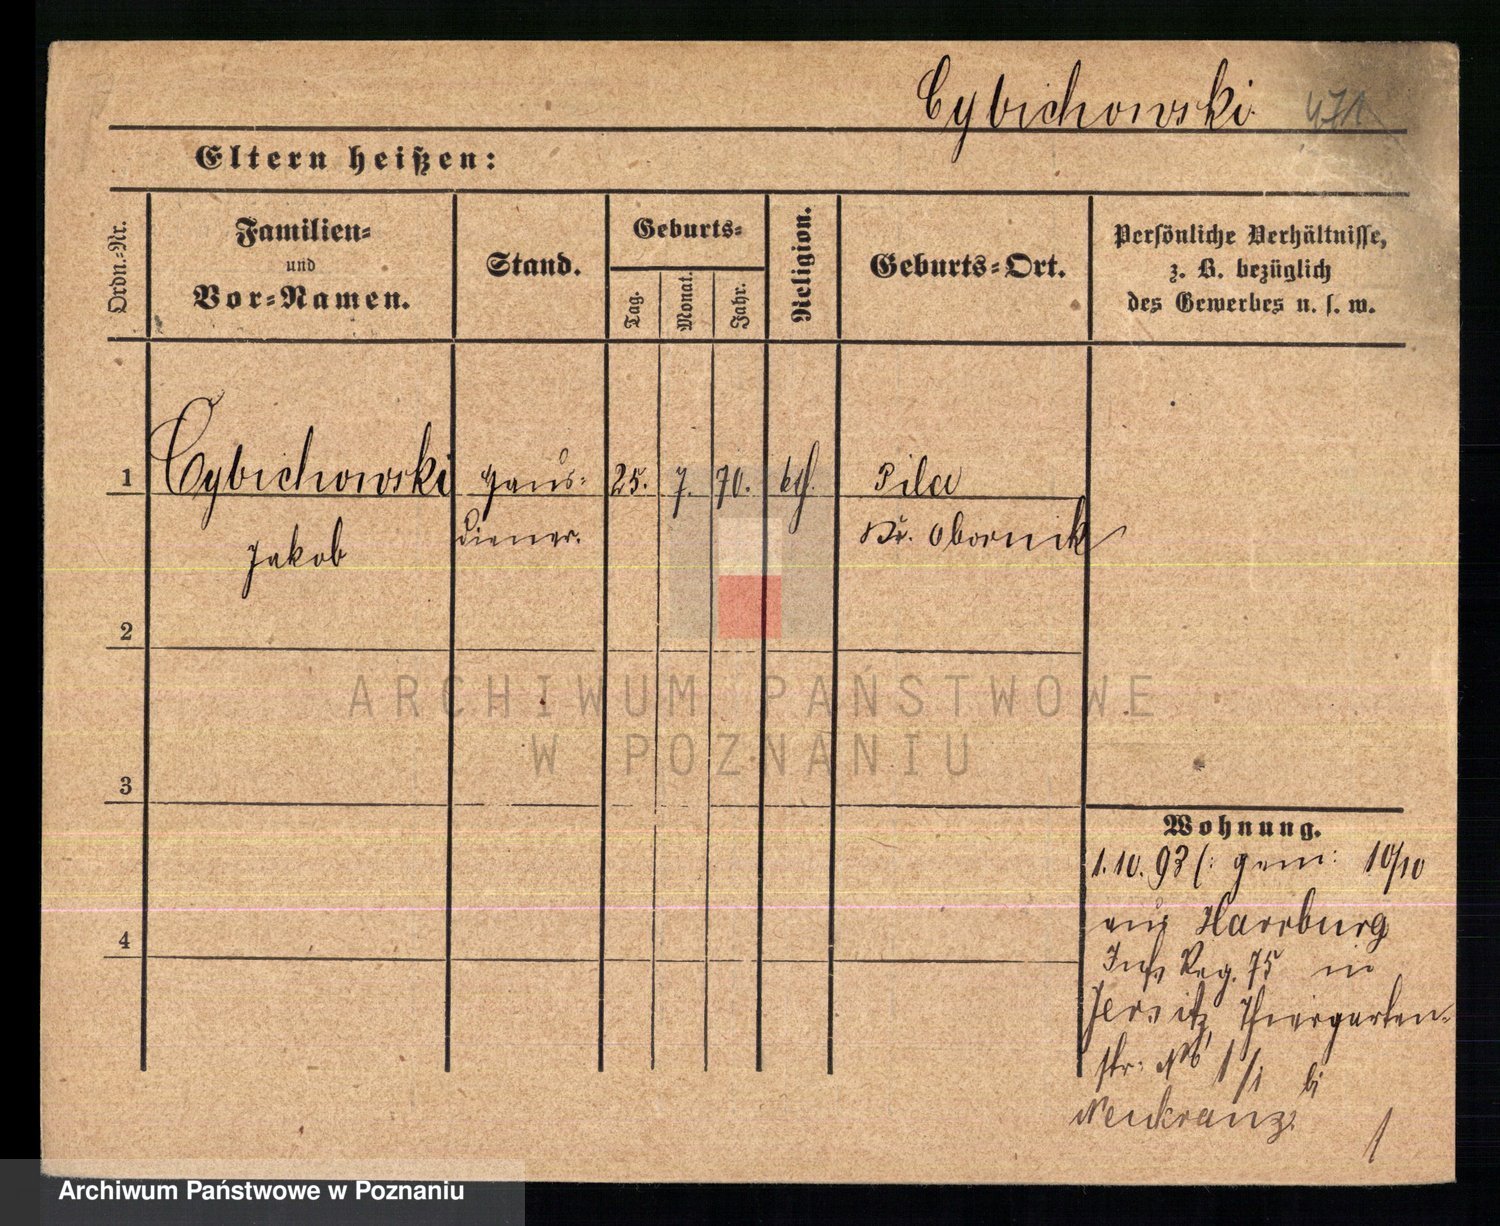 Cybichowski 471
Eltern heißen:
Ordn.-Nr.
Familien-
und
Vor-Namen.
Stand.
Geburts-
Tag.
Monat.
Jahr.
Religion.
Geburts-Ort.
Persönliche Verhältnisse,
z. B. bezüglich
des Gewerbes u. s. w.
1 Cybichowski Haus- 25. 7. 70. kth. Pila
Jakob diener. Kr. Obornik
2
3
4
ARCHIWUM PAŃSTWOWE
W POZNANIU
Wohnung.
1.10.93 (: gem: 10/10
aus Harburg
Inf. Reg. 75 in
Jersitz, Thiergarten-
str: No 1/1 bei
Neukranz.
Archiwum Państwowe w Poznaniu